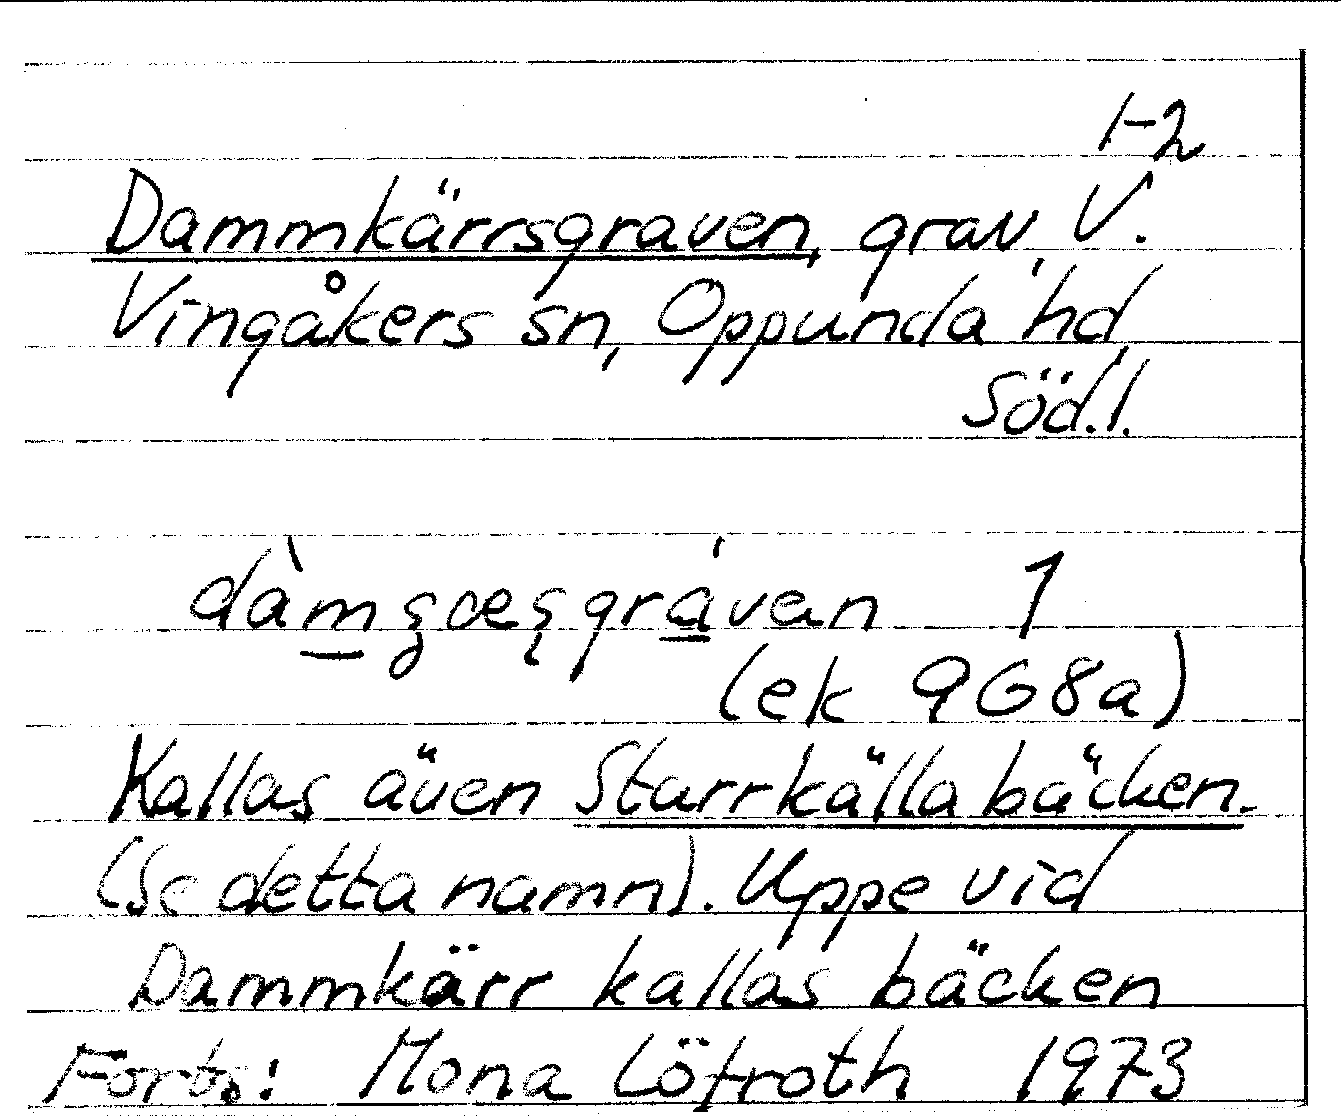 1-2
Dammkärrsgraven, grav, V.
Vingåkers sn, Oppunda hd,
Söd.l.
1
(ek 9G8a)
Kallas även Starrkällabäcken.
(Se detta namn). Uppe vid
Dammkärr kallas bäcken
Forts: Mona Löfroth 1973